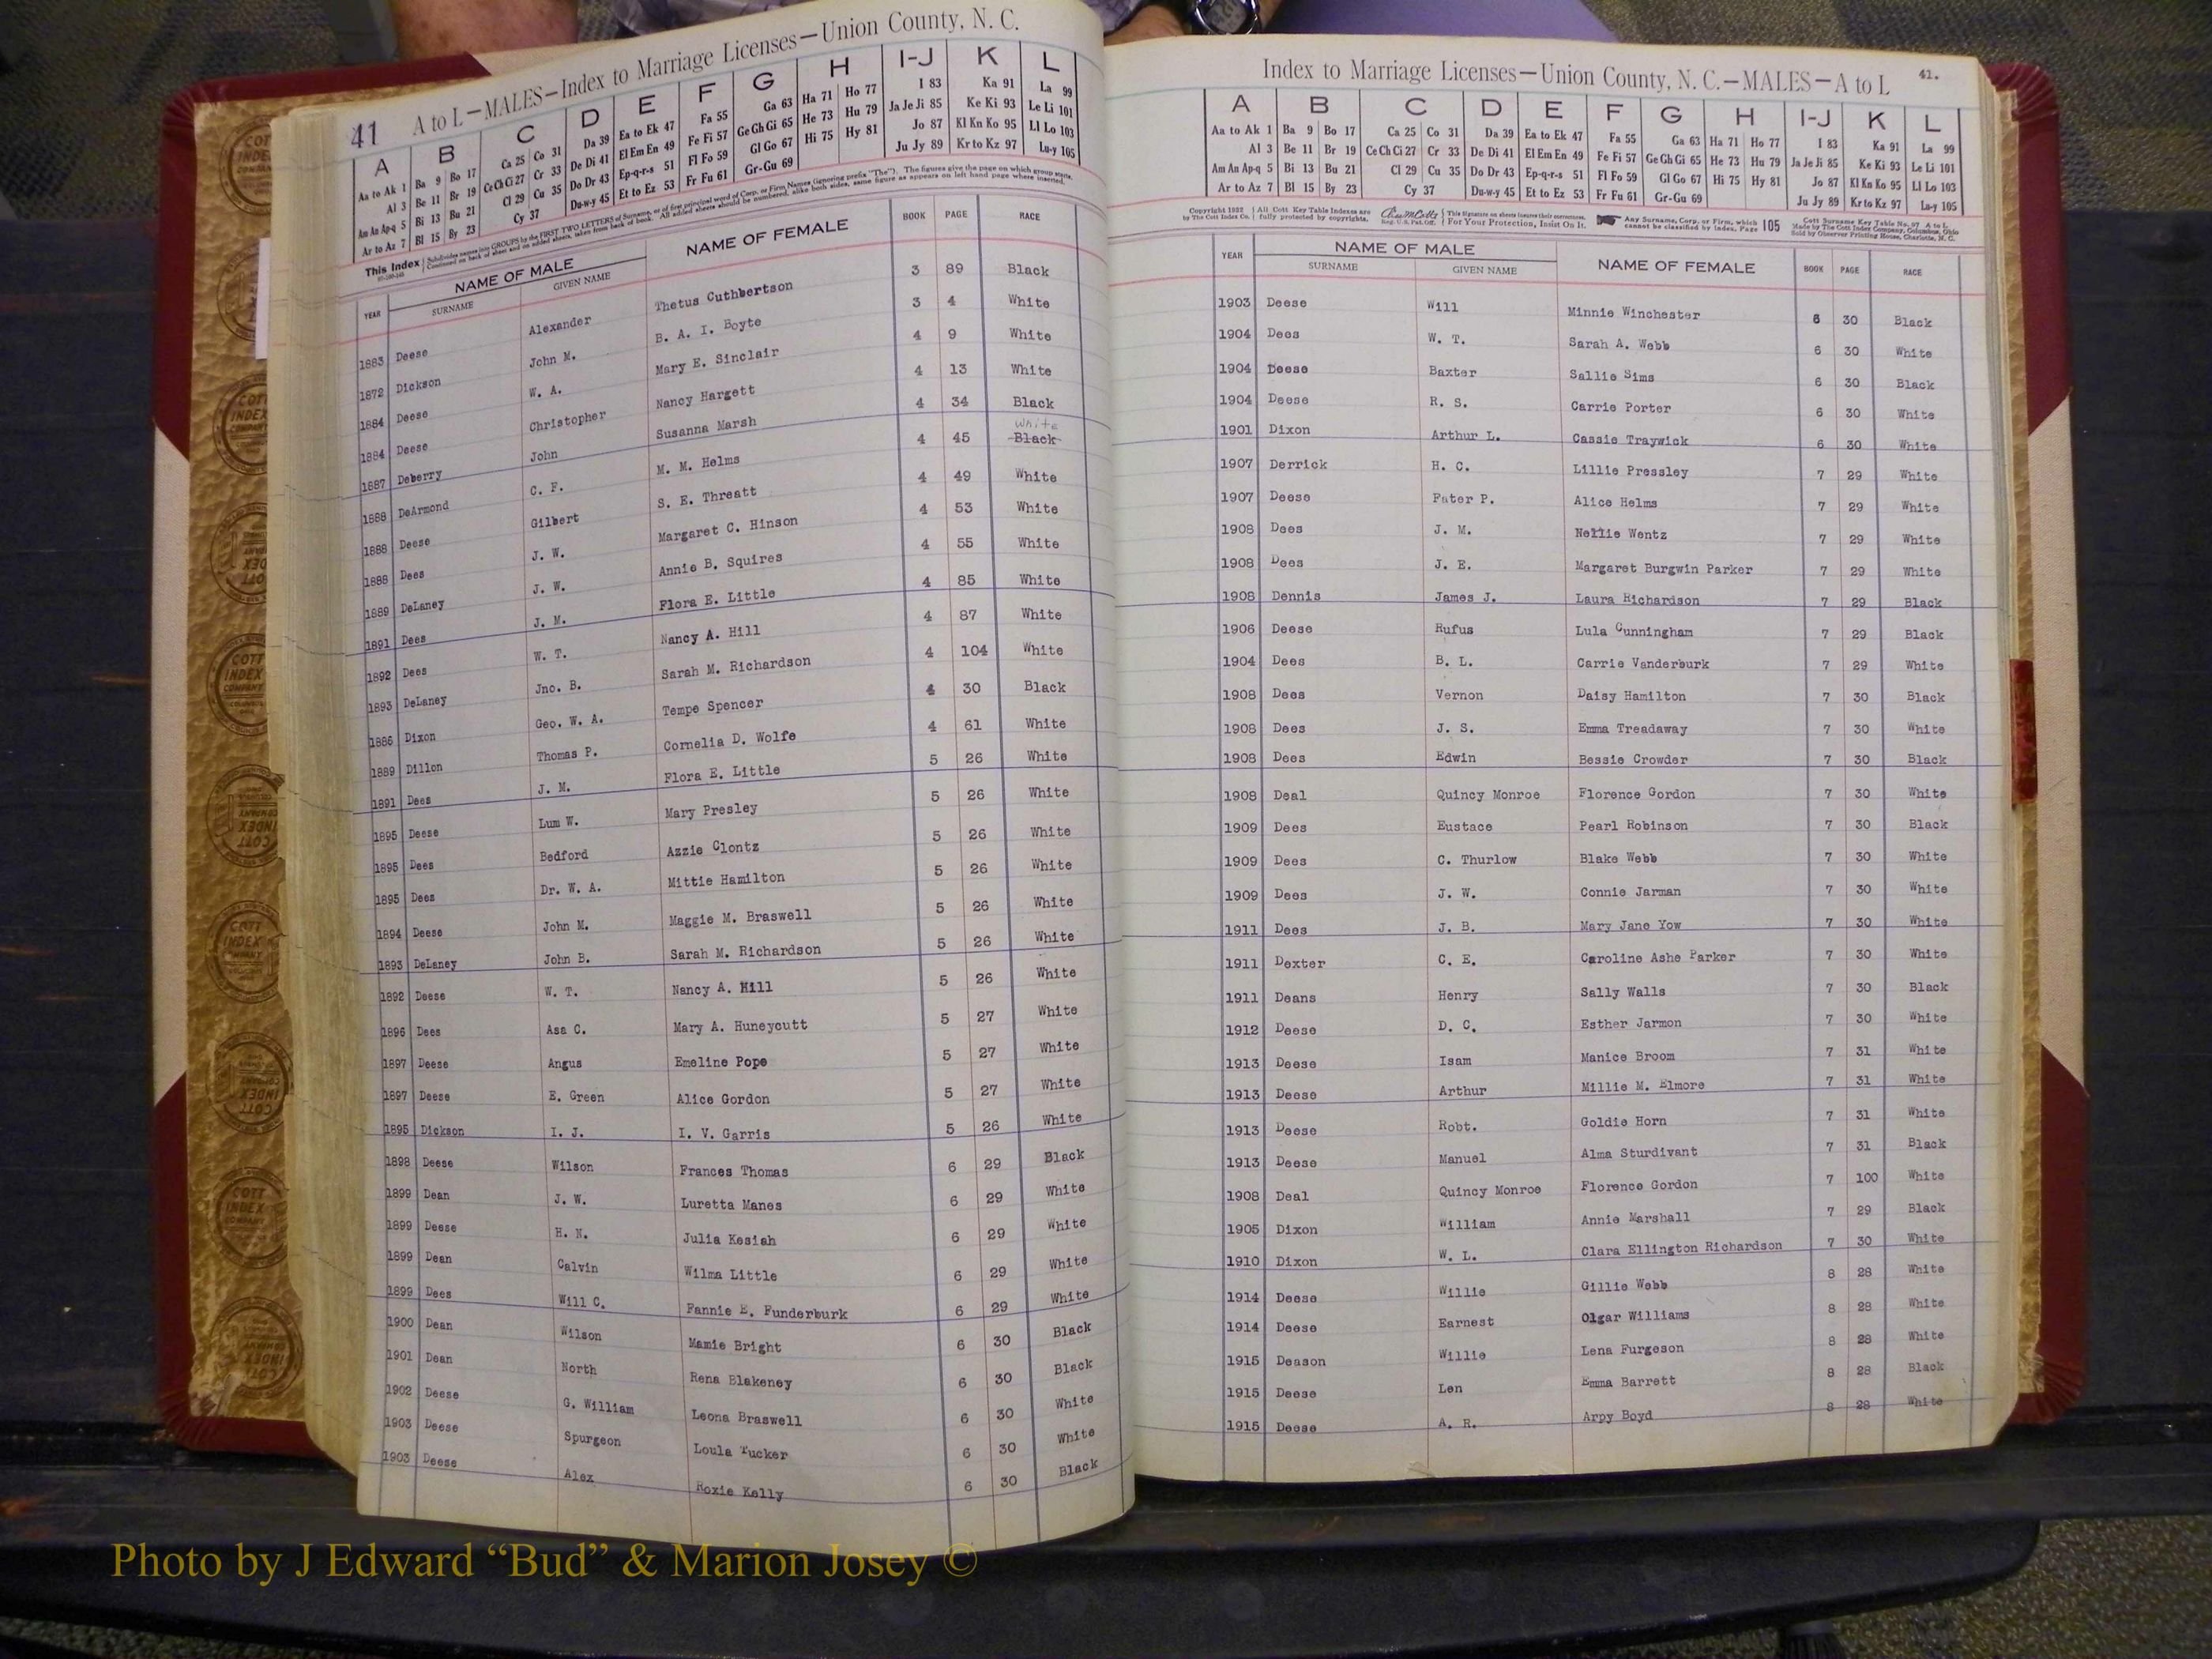 41 A to L—MALES—Index to Marriage Licenses—Union County, N. C.
A B C D E F G H I-J K L
Aa to Ak 1 Ba 9 Bo 17 Ca 25 Co 31 Da 39 Ea to Ek 47 Fa 55 Ga 63 Ha 71 Ho 77 I 83 Ka 91 La 99
Al 3 Be 11 Br 19 Ce Ch Ci 27 Cr 33 De Di 41 El Em En 49 Fe Fi 57 Ge Gh Gi 65 He 73 Hu 79 Ja Je Ji 85 Ke Ki 93 Le Li 101
Am An Ap-q 5 Bi 13 Bu 21 Cl 29 Cu 35 Do Dr 43 Ep-q-r-s 51 Fl Fo 59 Gl Go 67 Hi 75 Hy 81 Jo 87 Kl Kn Ko 95 Ll Lo 103
Ar to Az 7 Bl 15 By 23 Cy 37 Du-w-y 45 Et to Ez 53 Fr Fu 61 Gr-Gu 69 Ju Jy 89 Kr to Kz 97 Lu-y 105
This Index Subdivides names into GROUPS by the FIRST TWO LETTERS of Surname, or of first principal word of Corp. or Firm Names (ignoring prefix "The"). The figures give the page on which group starts.
Continued on back of sheet and on added sheets, taken from back of book. All added sheets should be numbered, alike both sides, same figure as appears on left hand page where inserted.
YEAR NAME OF MALE NAME OF FEMALE BOOK PAGE RACE
SURNAME GIVEN NAME
1883 Deese Alexander Thetus Cuthbertson 3 89 Black
1872 Dickson John M. B. A. I. Boyte 3 4 White
1884 Deese W. A. Mary E. Sinclair 4 9 White
1884 Deese Christopher Nancy Hargett 4 13 White
1887 Deberry John Susanna Marsh 4 34 Black
White
1888 DeArmond C. F. M. M. Helms 4 45 Black
1888 Deese Gilbert S. E. Threatt 4 49 White
1888 Dees J. W. Margaret C. Hinson 4 53 White
1889 DeLaney J. W. Annie B. Squires 4 55 White
1891 Dees J. M. Flora E. Little 4 85 White
1892 Dees W. T. Nancy A. Hill 4 87 White
1893 DeLaney Jno. B. Sarah M. Richardson 4 104 White
1886 Dixon Geo. W. A. Tempe Spencer 4 30 Black
1889 Dillon Thomas P. Cornelia D. Wolfe 4 61 White
1891 Dees J. M. Flora E. Little 5 26 White
1895 Deese Lum W. Mary Presley 5 26 White
1895 Dees Bedford Azzie Clontz 5 26 White
1895 Dees Dr. W. A. Mittie Hamilton 5 26 White
1894 Deese John M. Maggie M. Braswell 5 26 White
1893 DeLaney John B. Sarah M. Richardson 5 26 White
1892 Deese W. T. Nancy A. Hill 5 26 White
1896 Dees Asa C. Mary A. Huneycutt 5 27 White
1897 Deese Angus Emeline Pope 5 27 White
1897 Deese E. Green Alice Gordon 5 27 White
1895 Dickson I. J. I. V. Garris 5 26 White
1898 Deese Wilson Frances Thomas 6 29 Black
1899 Dean J. W. Luretta Manes 6 29 White
1899 Deese H. N. Julia Kesiah 6 29 White
1899 Dean Calvin Wilma Little 6 29 White
1899 Dees Will C. Fannie E. Funderburk 6 29 White
1900 Dean Wilson Mamie Bright 6 30 Black
1901 Dean North Rena Blakeney 6 30 Black
1902 Deese G. William Leona Braswell 6 30 White
1903 Deese Spurgeon Loula Tucker 6 30 White
1903 Deese Alex Roxie Kelly 6 30 Black
Index to Marriage Licenses—Union County, N. C.—MALES—A to L 41.
A B C D E F G H I-J K L
Aa to Ak 1 Ba 9 Bo 17 Ca 25 Co 31 Da 39 Ea to Ek 47 Fa 55 Ga 63 Ha 71 Ho 77 I 83 Ka 91 La 99
Al 3 Be 11 Br 19 Ce Ch Ci 27 Cr 33 De Di 41 El Em En 49 Fe Fi 57 Ge Gh Gi 65 He 73 Hu 79 Ja Je Ji 85 Ke Ki 93 Le Li 101
Am An Ap-q 5 Bi 13 Bu 21 Cl 29 Cu 35 Do Dr 43 Ep-q-r-s 51 Fl Fo 59 Gl Go 67 Hi 75 Hy 81 Jo 87 Kl Kn Ko 95 Ll Lo 103
Ar to Az 7 Bl 15 By 23 Cy 37 Du-w-y 45 Et to Ez 53 Fr Fu 61 Gr-Gu 69 Ju Jy 89 Kr to Kz 97 Lu-y 105
Copyright All Cott Key Table Indexes are This signature on sheets insures their correctness. Any Surname, Corp. or Firm, which 105 Cott Surname Key Table No. 97 A to L
by The Cott Index Co. fully protected by copyrights. Reg. U. S. Pat. Off. For Your Protection, Insist On It. cannot be classified by Index, Page Made by The Cott Index Company, Columbus, Ohio
Sold by Observer Printing House, Charlotte, N. C.
YEAR NAME OF MALE NAME OF FEMALE BOOK PAGE RACE
SURNAME GIVEN NAME
1903 Deese Will Minnie Winchester 6 30 Black
1904 Dees W. T. Sarah A. Webb 6 30 White
1904 Deese Baxter Sallie Sims 6 30 Black
1904 Deese R. S. Carrie Porter 6 30 White
1901 Dixon Arthur L. Cassie Traywick 6 30 White
1907 Derrick H. C. Lillie Pressley 7 29 White
1907 Deese Pater P. Alice Helms 7 29 White
1908 Dees J. M. Nellie Wentz 7 29 White
1908 Dees J. E. Margaret Burgwin Parker 7 29 White
1908 Dennis James J. Laura Richardson 7 29 Black
1906 Deese Rufus Lula Cunningham 7 29 Black
1904 Dees B. L. Carrie Vanderburk 7 29 White
1908 Dees Vernon Daisy Hamilton 7 30 Black
1908 Dees J. S. Emma Treadaway 7 30 White
1908 Dees Edwin Bessie Crowder 7 30 Black
1908 Deal Quincy Monroe Florence Gordon 7 30 White
1909 Dees Eustace Pearl Robinson 7 30 Black
1909 Dees C. Thurlow Blake Webb 7 30 White
1909 Dees J. W. Connie Jarman 7 30 White
1911 Dees J. B. Mary Jane Yow 7 30 White
1911 Dexter C. E. Caroline Ashe Parker 7 30 White
1911 Deans Henry Sally Walls 7 30 Black
1912 Deese D. C. Esther Jarmon 7 30 White
1913 Deese Isam Manice Broom 7 31 White
1913 Deese Arthur Millie M. Elmore 7 31 White
1913 Deese Robt. Goldie Horn 7 31 White
1913 Deese Manuel Alma Sturdivant 7 31 Black
1908 Deal Quincy Monroe Florence Gordon 7 100 White
1905 Dixon William Annie Marshall 7 29 Black
1910 Dixon W. L. Clara Ellington Richardson 7 30 White
1914 Deese Willie Gillie Webb 8 28 White
1914 Deese Earnest Olgar Williams 8 28 White
1915 Deason Willie Lena Furgeson 8 28 White
1915 Deese Len Emma Barrett 8 28 Black
1915 Deese A. R. Arpy Boyd 8 28 White
Photo by J Edward “Bud” & Marion Josey ©